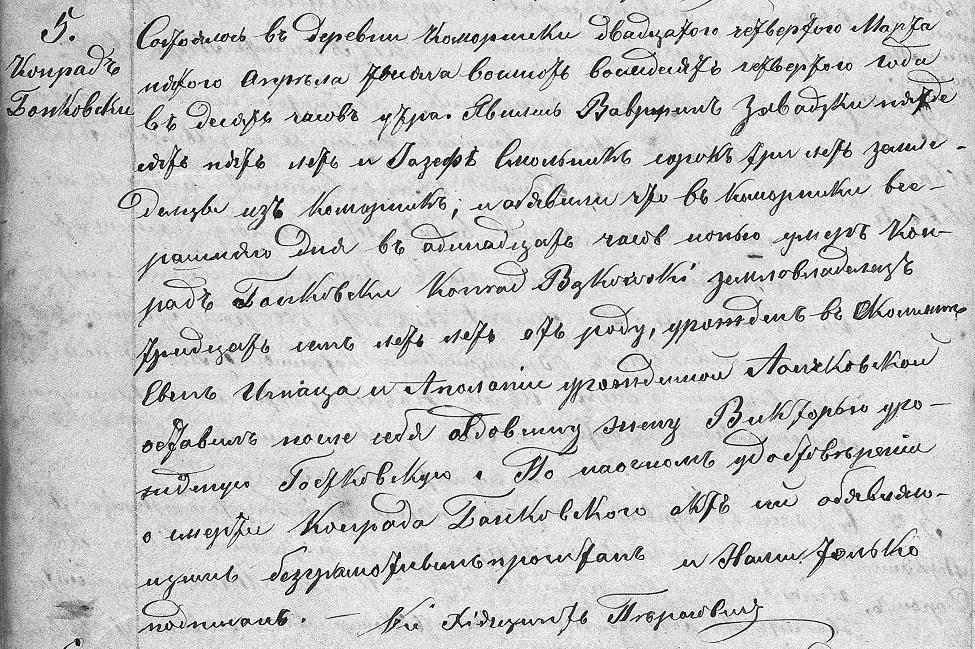 5.
Конрадъ
Бонковски
Состоялось въ деревни Коморники двадцатого четвертого Марта
пятого Апрѣла тысяча восмотъ восмдесятъ четвертого года
въ десять часовъ утра. Явились Заведзки пятьде
сятъ пять летъ и Іозефъ Смольникъ сорокъ три летъ земле-
дельцы изъ Коморникъ, и объявили что въ Коморники вче-
рашняго дня въ адинадцатъ часов ночью умеръ Кон-
радъ Бонковски Konrad Bąkowski земловладелецъ
тридцатъ семъ летъ отъ роду, урожденъ въ
Сынъ Игнаца и Аполаніи урожденной
оставилъ после себя адовевшу жену Викторью уро-
жденую . По наочномъ удостовѣреніи
о смерти Конрада Бонковского актъ сей объявляю-
щимъ безграмотнымъ прочитанъ и Нами только
подписанъ. —